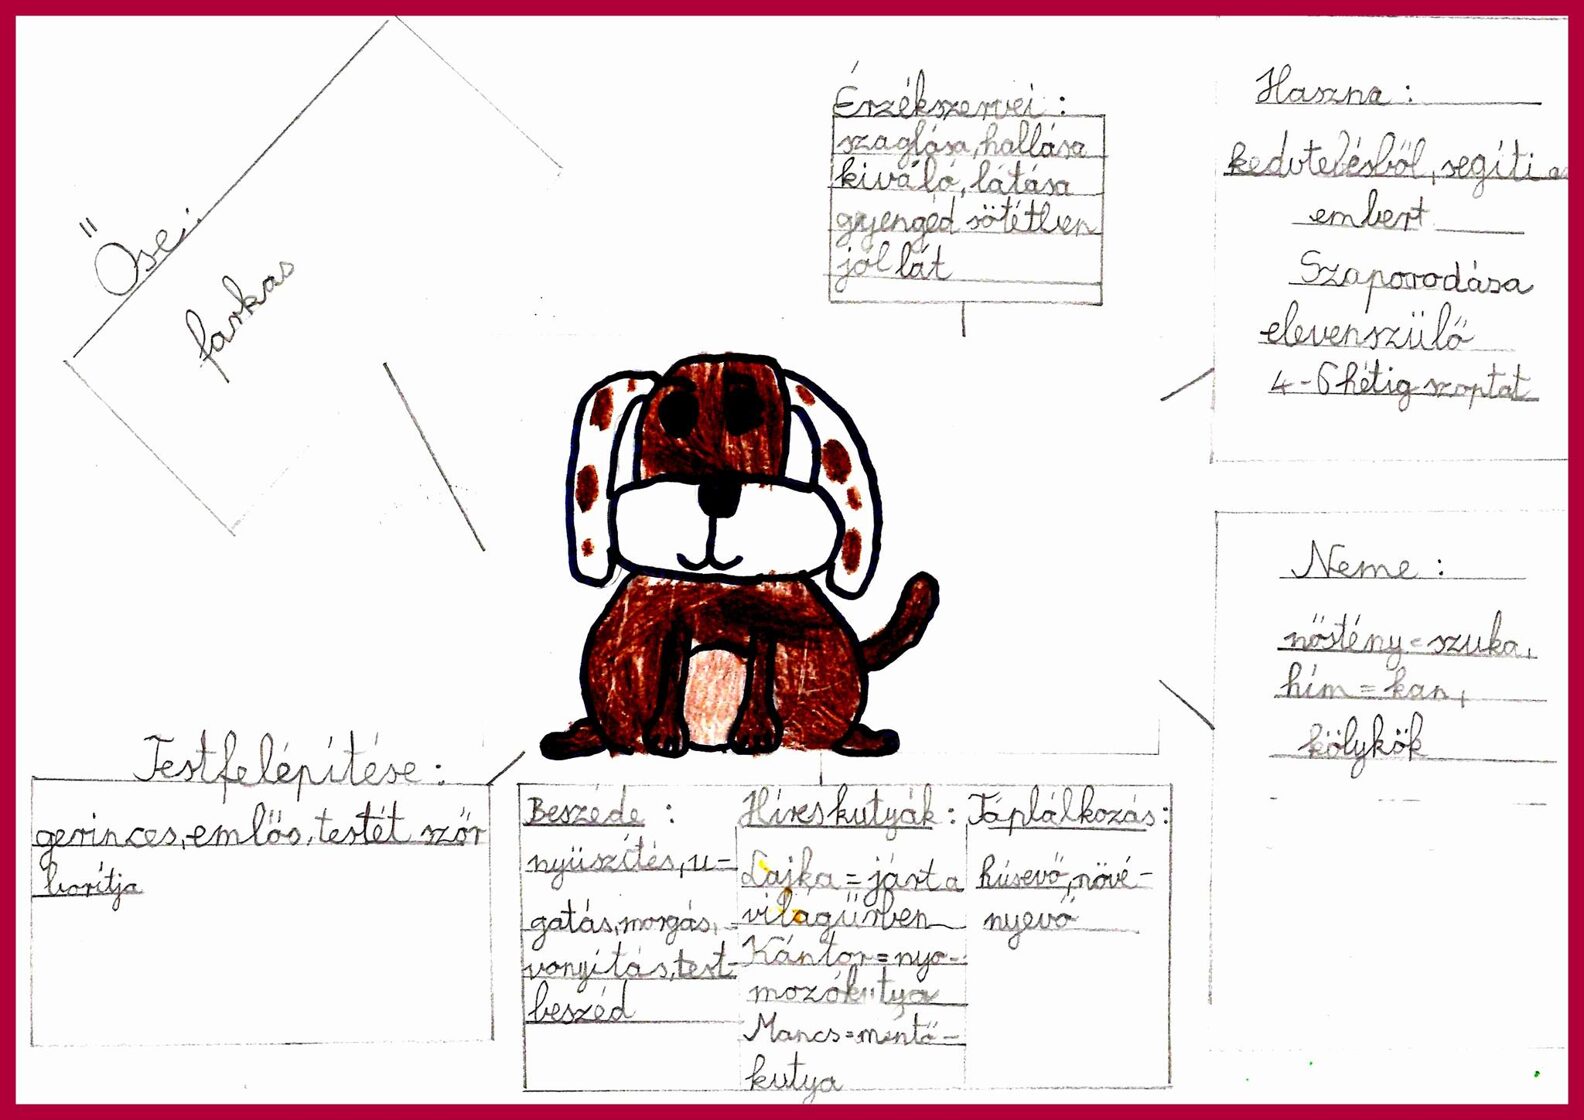 Ősei:
farkas
Érzékszervei:
szaglása, hallása
kiváló, látása
gyengéd sötétben
jól lát
Haszna:
kedvtelésből, segíti az
embert
Szaporodása
elevenszülő
4-6 hétig szoptat
Neme:
nőstény=szuka,
hím=kan,
kölykök
Testfelépítése:
gerinces, emlős, testét szőr
borítja
Beszéde:
nyüszítés, u=
gatás, morgás,
vonyítás, test-
beszéd
Híres kutyák:
Lajka=járt a
világűrben
Kántor=nyo-
mozókutya
Mancs=mentő-
kutya
Táplálkozás:
húsevő, növé-
nyevő